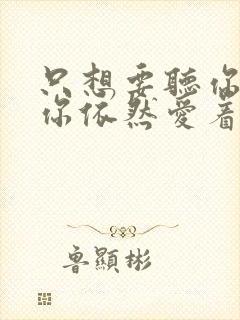 只想要聽你
你依然愛着
魯顯彬